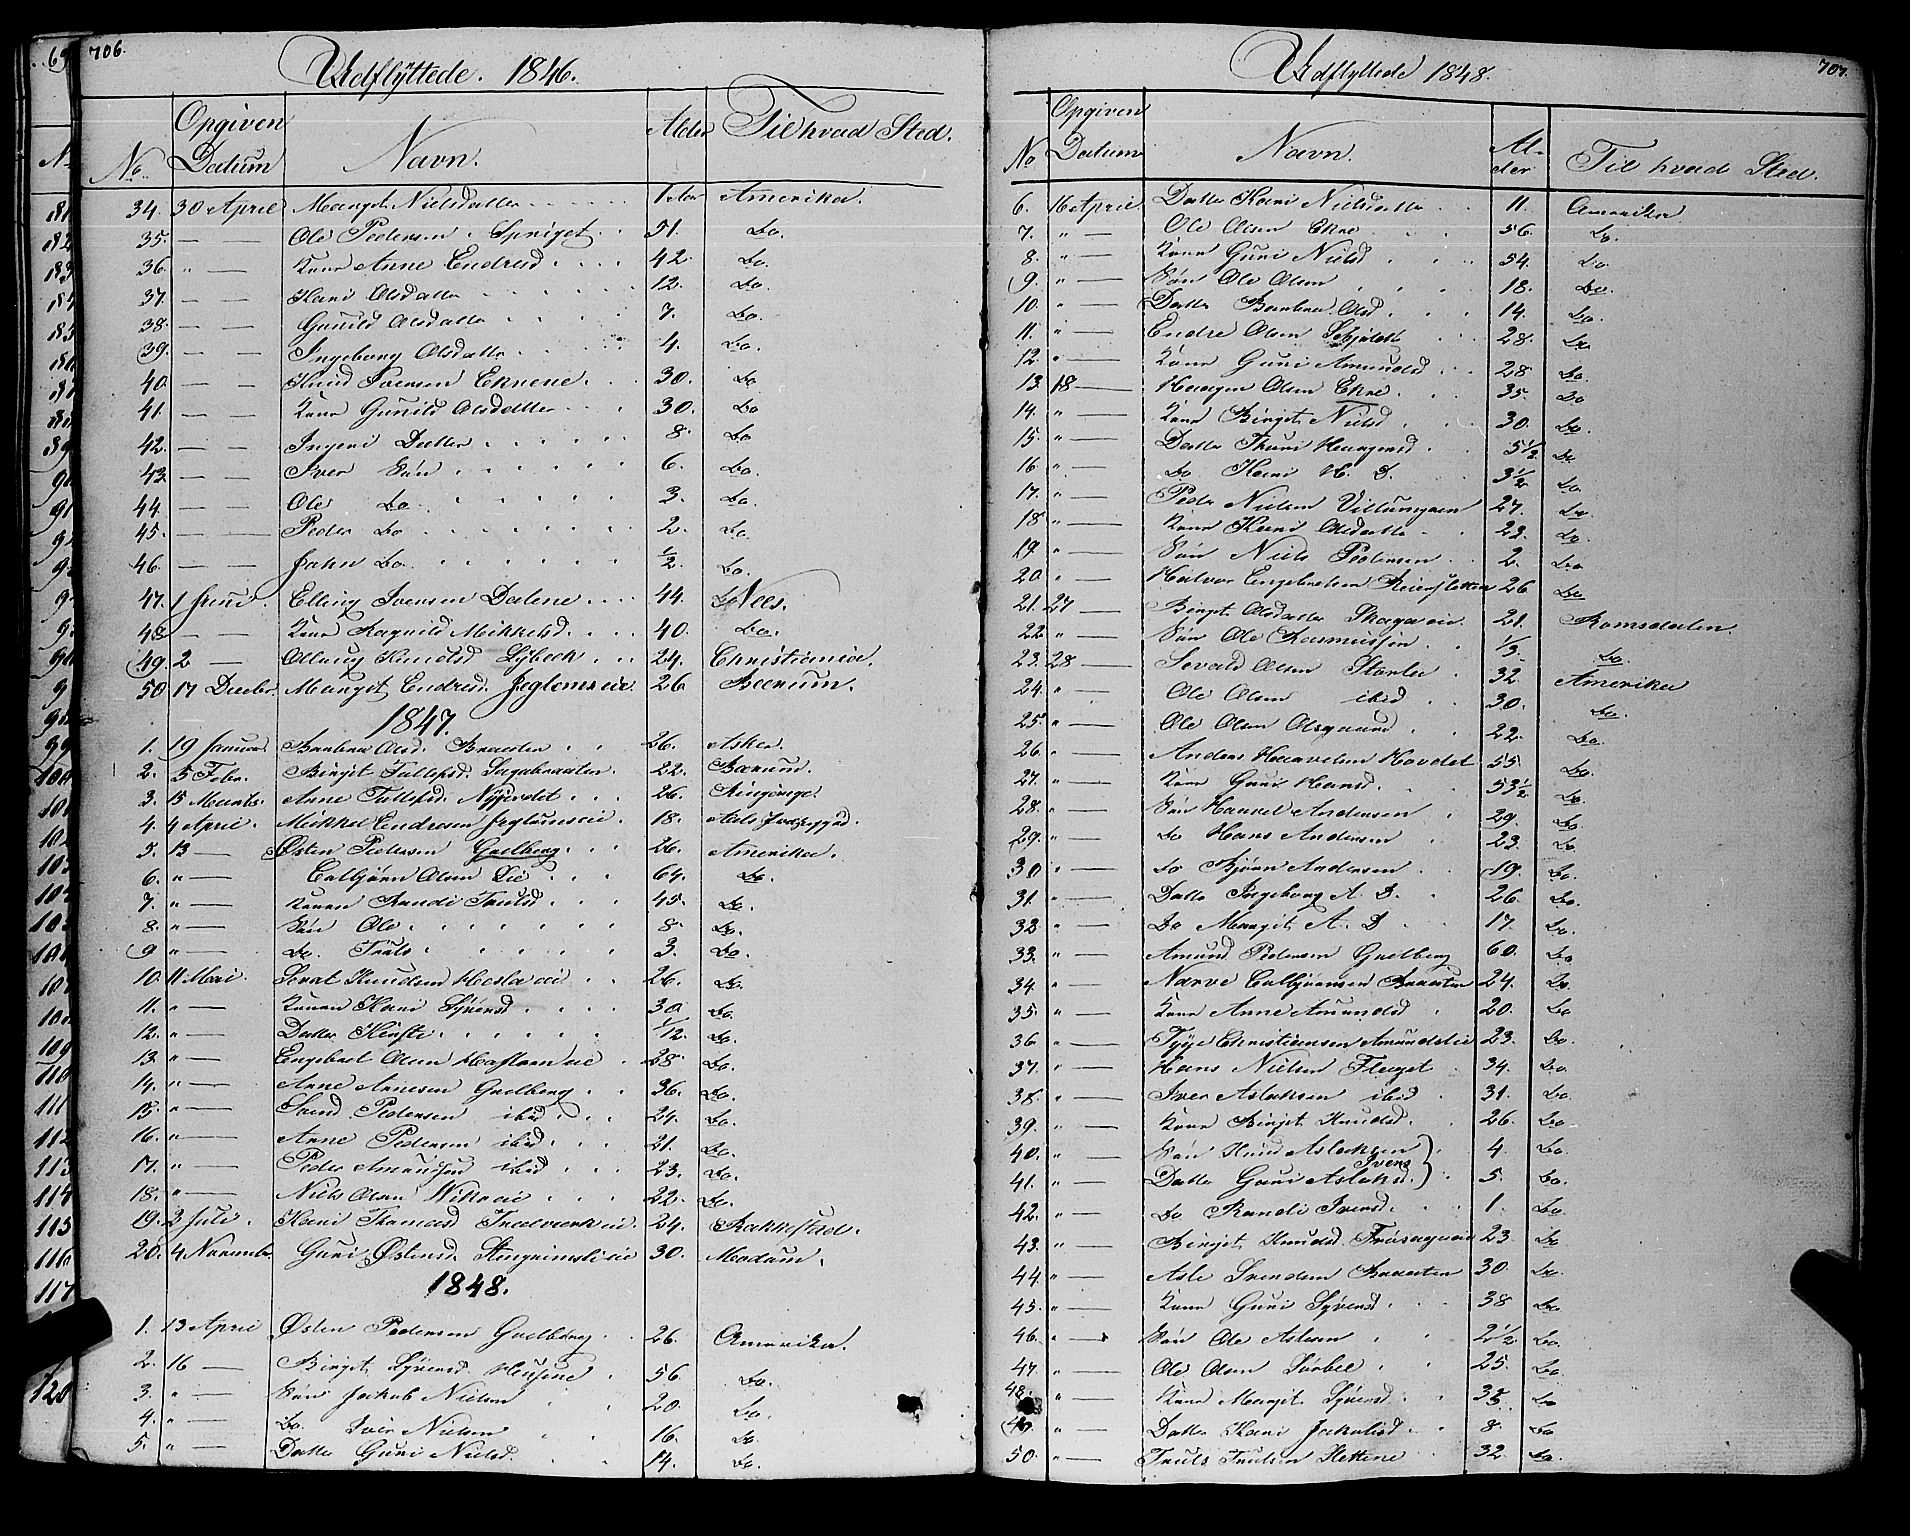 706.
Udflyttede. 1846.
No. Opgiven Datum Navn. Alder Til hvad Sted.
34. 30 April Margit Nielsdatter 1 Aar Amerika.
35. — — Ole Pedersen Spriget 51. Do.
36. " — Kone Anne Endresd 42. Do.
37. — — Kari Olsdatter 12. Do.
38. — — Gunild Olsdatter 7. Do.
39. — — Ingeborg Olsdatter 4. Do.
40. — — Knud Iversen Eknene 30. Do
41. — — Kone Gunild Olsdatter 30. Do
42. — — Ingeri Datter 8. Do
43. — — Iver Søn 6. Do.
44. — — Ole Do. 3. Do.
45. — — Peder Do 2. Do.
46. — — John Do. ½. Do.
47. 1 Juni Elling Svensen Dalene 44. Nees.
48. — — Kone Ragnild Mikkelsd. 40. Do.
49. 2 — Knudsd Lybeck 24. Christiania.
50. 17 Decbr. Margit Endresd. 26 Bærum.
1847.
1. 19 Januar. Barbro Olsd. Braaten 26. Asker.
2. 5 Febr. Birgit Tollefsd. Sagabraaten 22. Bærum.
3. 15 Marts. Anne Tollefsd. 26. Ringerige.
4. 4 April. Mikkel Endresen 18. Aals
5. 13 — Østen Pedersen Gulberg 26. Amerika.
6. " — Colbjørn Olsen Lie 64. Do.
7. " — Konen Randi Trulsd 45. Do.
8. " — Søn Ole 8. Do.
9. " — Do. Truls 3. Do.
10. 11 Mai. Knudsen 26. Do.
11. " — Konen Kari Syversd 30. Do.
12. " — Datter Kirsti 1/12. Do.
13. " — Engebret Olsen 28. Do.
14. " — Anne Gulberg 36. Do.
15. " — Svend Pedersen ibid 24. Do.
16. " — Anne Pedersen ibid 21. Do.
17. " — Peder ibid 23. Do.
18. " — Niels Olsen 22. Do.
19. 3 Juli. Kari Thomasd. 24. Rakkestad.
20. 4 Novembr. Guri Østensd. 30. Modum.
1848.
1. 13 April Østen Pedersen Gulberg 26. Amerika.
2. 16 — Birgit Syversd 56. Do.
3. " — Søn Jakob Nielsen 20. Do.
4. " — Do. Iver Nielsen 16. Do.
5. " — Datter Guri Nielsd. 14. Do.
707.
Udflyttede 1848.
No Opgiven Datum Navn. Alder Til hvad Sted.
6. 16 April Datter Kari Nielsdatter 11. Amerika
7. " — Ole Olsen Ekre 56. Do.
8. " — Kone Guri Nielsd 54. Do
9. " — Søn Ole Olsen 18. Do.
10. " — Datter Barbro Olsd. 14. Do.
11. " — Endre Olsen 28. Do
12. " — Kone Guri Amundsd 28 Do.
13. 18 — Haagen Olsen Ekre 35. Do
14. " — Kone Birgit Nielsd 30. Do.
15. " — Datter Thuri Haagensd. 5½ Do
16. " — Do Kari H. D. 3½. Do.
17. " — Peder Nielsen Villungen 27. Do.
18. " — Kone Kari Olsdatter 22. Do.
19. " — Søn Niels Pedersen 2. Do.
20. " — Halvor Engebretsen 26 Do.
21. 27 — Birgit Olsdatter 21. Romsdalen.
22. " — Søn Ole Rasmussen 1/3. Do.
23. 28 — Sevald Olsen 32. Amerika
24. " — Ole Olsen ibid 30. Do.
25. " — Ole Olsen Olsgaard 22. Do.
26. " — Anders Haavelsen Hovdet 55. Do.
27. " — Kone Guri Hansd. 53½. Do.
28. " — Søn Haavel Andersen 29. Do.
29. " — Do Hans Andersen 23. Do.
30. " — Do Bjørn Andersen 19. Do.
31. " — Datter Ingeborg A. D. 26. Do.
32. " — Do Margit A. D 17. Do.
33. " — Amund Pedersen Gulberg 60. Do
34. " — Narve Colbjørnsen Braaten 24. Do.
35. " — Kone Anne Amundsd 20. Do
36. " — Christiansen 23. Do.
37. " — Hans Nielsen Flaget 34. Do.
38. " — Iver Aslaksen ibid 31. Do.
39. " — Kone Birgit Knudsd. 26. Do
40. " — Søn Knud Aslaksen 4. Do.
41. " — Datter Guri Aslaksd. Ivers 5. Do.
42. " — Do Randi Iversd. 1. Do.
43. " — Birgit Knudsd. 23. Do
44. " — Asle Svendsen Braaten 30. Do.
45. " — Kone Guri Syversd. 38 Do
46. " — Søn Ole Aslesen 2½ Do.
47. " — Ole Olsen 25. Do
48. " — Kone Margit Syversd. 35. Do
49. " — Datter Kari Jakobsd. 8. Do
50. " — Truls Trulsen 32. Do.